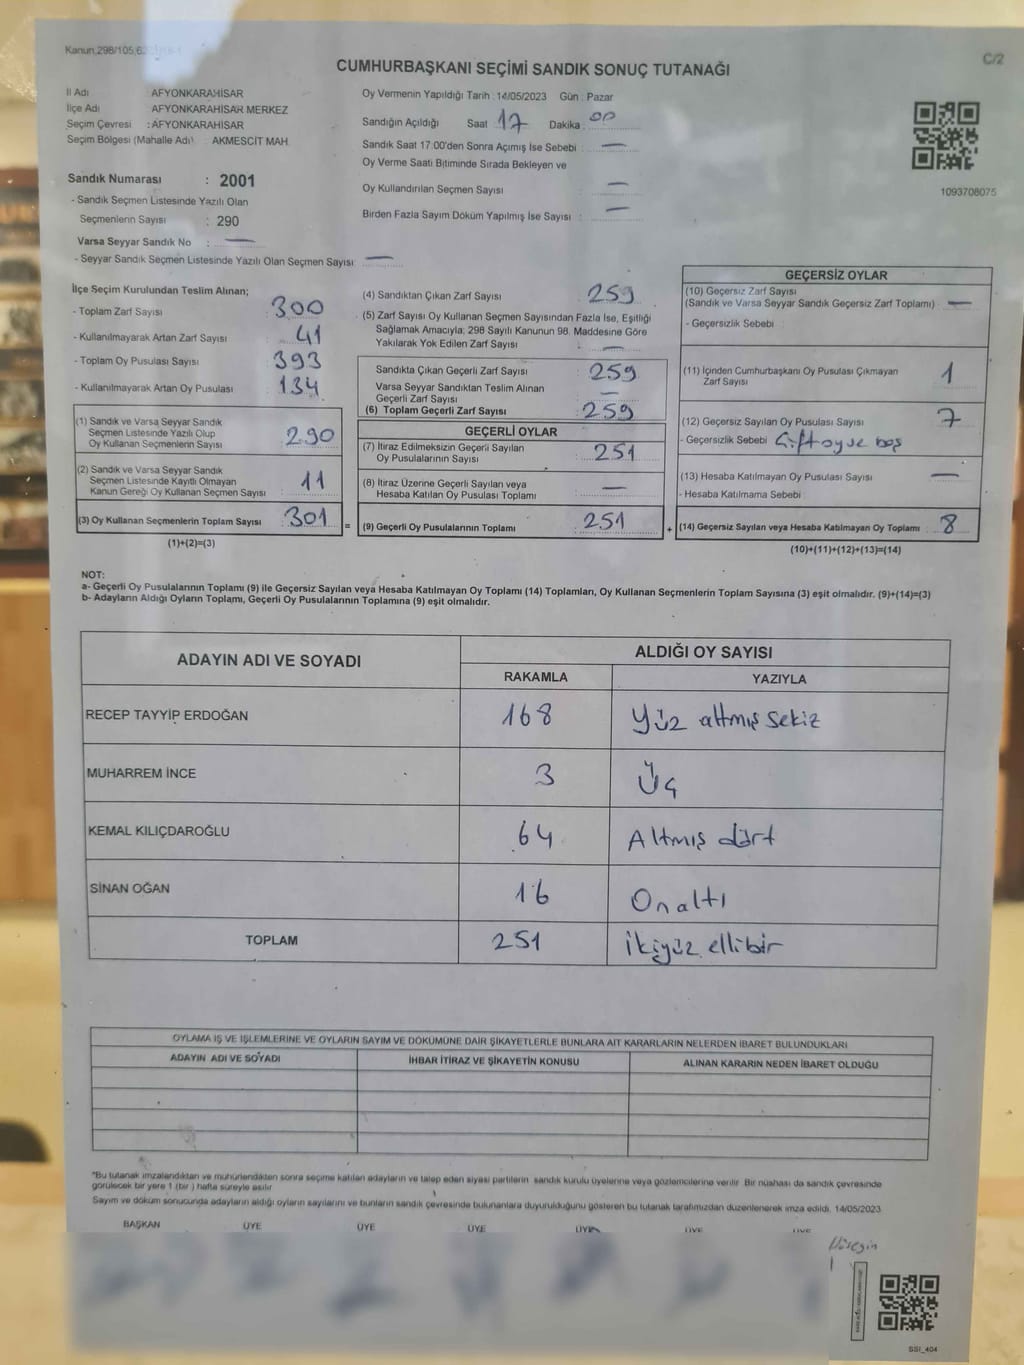 Kanun,298/105,6
C/2
CUMHURBAŞKANI SEÇİMİ SANDIK SONUÇ TUTANAĞI
İl Adı AFYONKARAHİSAR
İlçe Adı AFYONKARAHİSAR MERKEZ
Seçim Çevresi : AFYONKARAHİSAR
Seçim Bölgesi (Mahalle Adı) : AKMESCİT MAH.
Sandık Numarası : 2001
- Sandık Seçmen Listesinde Yazılı Olan
Seçmenlerin Sayısı : 290
Varsa Seyyar Sandık No : —
- Seyyar Sandık Seçmen Listesinde Yazılı Olan Seçmen Sayısı: —
Oy Vermenin Yapıldığı Tarih : 14/05/2023 Gün : Pazar
Sandığın Açıldığı Saat 17 Dakika 00
Sandık Saat 17:00'den Sonra Açımış İse Sebebi : —
Oy Verme Saati Bitiminde Sırada Bekleyen ve
Oy Kullandırılan Seçmen Sayısı —
Birden Fazla Sayım Döküm Yapılmış İse Sayısı : —
1093708075
İlçe Seçim Kurulundan Teslim Alınan;
- Toplam Zarf Sayısı : 300
- Kullanılmayarak Artan Zarf Sayısı : 41
- Toplam Oy Pusulası Sayısı : 393
- Kullanılmayarak Artan Oy Pusulası : 134
(1) Sandık ve Varsa Seyyar Sandık
Seçmen Listesinde Yazılı Olup
Oy Kullanan Seçmenlerin Sayısı : 290
(2) Sandık ve Varsa Seyyar Sandık
Seçmen Listesinde Kayıtlı Olmayan
Kanun Gereği Oy Kullanan Seçmen Sayısı : 11
(3) Oy Kullanan Seçmenlerin Toplam Sayısı : 301 =
(1)+(2)=(3)
(4) Sandıktan Çıkan Zarf Sayısı : 259
(5) Zarf Sayısı Oy Kullanan Seçmen Sayısından Fazla İse, Eşitliği
Sağlamak Amacıyla; 298 Sayılı Kanunun 98. Maddesine Göre
Yakılarak Yok Edilen Zarf Sayısı : —
Sandıkta Çıkan Geçerli Zarf Sayısı : 259
Varsa Seyyar Sandıktan Teslim Alınan
Geçerli Zarf Sayısı : —
(6) Toplam Geçerli Zarf Sayısı : 259
GEÇERLİ OYLAR
(7) İtiraz Edilmeksizin Geçerli Sayılan
Oy Pusulalarının Sayısı : 251
(8) İtiraz Üzerine Geçerli Sayılan veya
Hesaba Katılan Oy Pusulası Toplamı : —
(9) Geçerli Oy Pusulalarının Toplamı : 251 +
GEÇERSİZ OYLAR
(10) Geçersiz Zarf Sayısı
(Sandık ve Varsa Seyyar Sandık Geçersiz Zarf Toplamı) : —
- Geçersizlik Sebebi :
(11) İçinden Cumhurbaşkanı Oy Pusulası Çıkmayan
Zarf Sayısı : 1
(12) Geçersiz Sayılan Oy Pusulası Sayısı : 7
- Geçersizlik Sebebi : Çift oy ve boş
(13) Hesaba Katılmayan Oy Pusulası Sayısı : —
- Hesaba Katılmama Sebebi :
(14) Geçersiz Sayılan veya Hesaba Katılmayan Oy Toplamı : 8
(10)+(11)+(12)+(13)=(14)
NOT:
a- Geçerli Oy Pusulalarının Toplamı (9) ile Geçersiz Sayılan veya Hesaba Katılmayan Oy Toplamı (14) Toplamları, Oy Kullanan Seçmenlerin Toplam Sayısına (3) eşit olmalıdır. (9)+(14)=(3)
b- Adayların Aldığı Oyların Toplamı, Geçerli Oy Pusulalarının Toplamına (9) eşit olmalıdır.
ADAYIN ADI VE SOYADI ALDIĞI OY SAYISI
RAKAMLA YAZIYLA
RECEP TAYYİP ERDOĞAN 168 Yüz altmış sekiz
MUHARREM İNCE 3 Üç
KEMAL KILIÇDAROĞLU 64 Altmış dört
SİNAN OĞAN 16 On altı
TOPLAM 251 İkiyüz ellibir
OYLAMA İŞ VE İŞLEMLERİNE VE OYLARIN SAYIM VE DÖKÜMÜNE DAİR ŞİKAYETLERLE BUNLARA AİT KARARLARIN NELERDEN İBARET BULUNDUKLARI
ADAYIN ADI VE SOYADI İHBAR İTİRAZ VE ŞİKAYETİN KONUSU ALINAN KARARIN NEDEN İBARET OLDUĞU
*Bu tutanak imzalandıktan ve mühürlendikten sonra seçime katılan adayların ve talep eden siyasi partilerin sandık kurulu üyelerine veya gözlemcilerine verilir. Bir nüshası da sandık çevresinde
görülecek bir yere 1 (bir) hafta süreyle asılır
Sayım ve döküm sonucunda adayların aldığı oyların sayılarını ve bunların sandık çevresinde bulunanlara duyurulduğunu gösteren bu tutanak tarafımızdan düzenlenerek imza edildi. 14/05/2023
BAŞKAN ÜYE ÜYE ÜYE ÜYE ÜYE ÜYE
Hüseyin
SSI_404